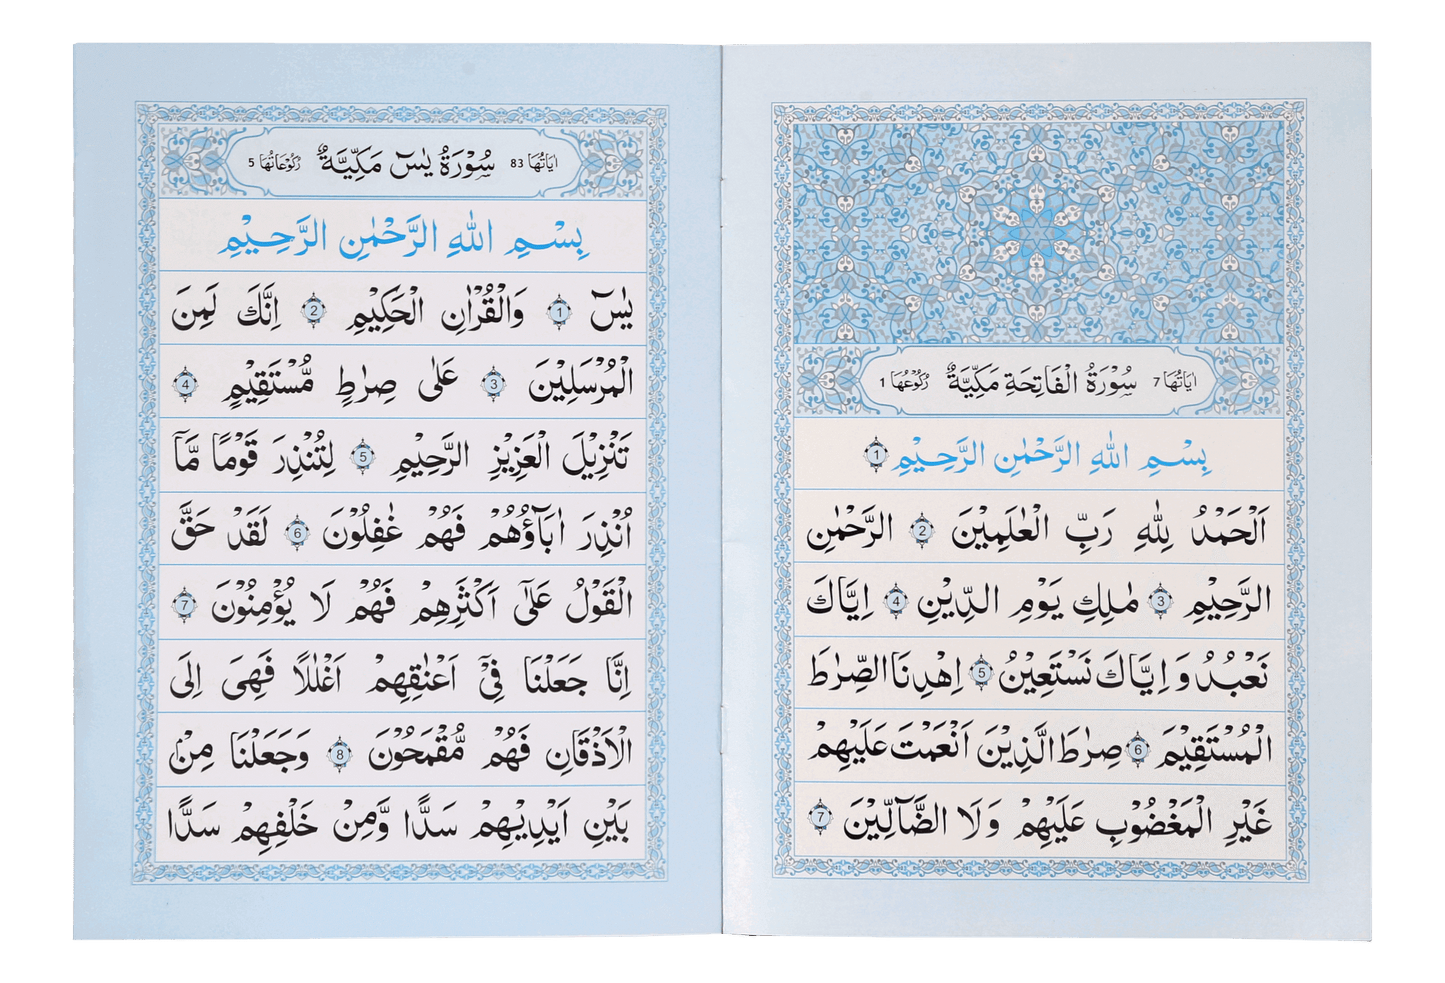 اٰيَاتُهَا 7 سُوْرَةُ الْفَاتِحَةِ مَكِّيَّةٌ رُكُوْعُهَا 1
بِسْمِ اللّٰهِ الرَّحْمٰنِ الرَّحِيْمِ 1
اَلْحَمْدُ لِلّٰهِ رَبِّ الْعٰلَمِيْنَ 2 الرَّحْمٰنِ
الرَّحِيْمِ 3 مٰلِكِ يَوْمِ الدِّيْنِ 4 اِيَّاكَ
نَعْبُدُ وَ اِيَّاكَ نَسْتَعِيْنُ 5 اِهْدِنَا الصِّرٰطَ
الْمُسْتَقِيْمَ 6 صِرٰطَ الَّذِيْنَ اَنْعَمْتَ عَلَيْهِمْ
غَيْرِ الْمَغْضُوْبِ عَلَيْهِمْ وَلَا الضَّآلِّيْنَ 7
اٰيَاتُهَا 83 سُوْرَةُ يٰسٓ مَكِّيَّةٌ رُكُوْعَاتُهَا 5
بِسْمِ اللّٰهِ الرَّحْمٰنِ الرَّحِيْمِ
يٰسٓ 1 وَالْقُرْاٰنِ الْحَكِيْمِ 2 اِنَّكَ لَمِنَ
الْمُرْسَلِيْنَ 3 عَلٰى صِرٰطٍ مُّسْتَقِيْمٍ 4
تَنْزِيْلَ الْعَزِيْزِ الرَّحِيْمِ 5 لِتُنْذِرَ قَوْمًا مَّآ
اُنْذِرَ اٰبَآؤُهُمْ فَهُمْ غٰفِلُوْنَ 6 لَقَدْ حَقَّ
الْقَوْلُ عَلٰٓى اَكْثَرِهِمْ فَهُمْ لَا يُؤْمِنُوْنَ 7
اِنَّا جَعَلْنَا فِيْٓ اَعْنٰقِهِمْ اَغْلٰلًا فَهِىَ اِلَى
الْاَذْقَانِ فَهُمْ مُّقْمَحُوْنَ 8 وَجَعَلْنَا مِنْۢ
بَيْنِ اَيْدِيْهِمْ سَدًّا وَّمِنْ خَلْفِهِمْ سَدًّا